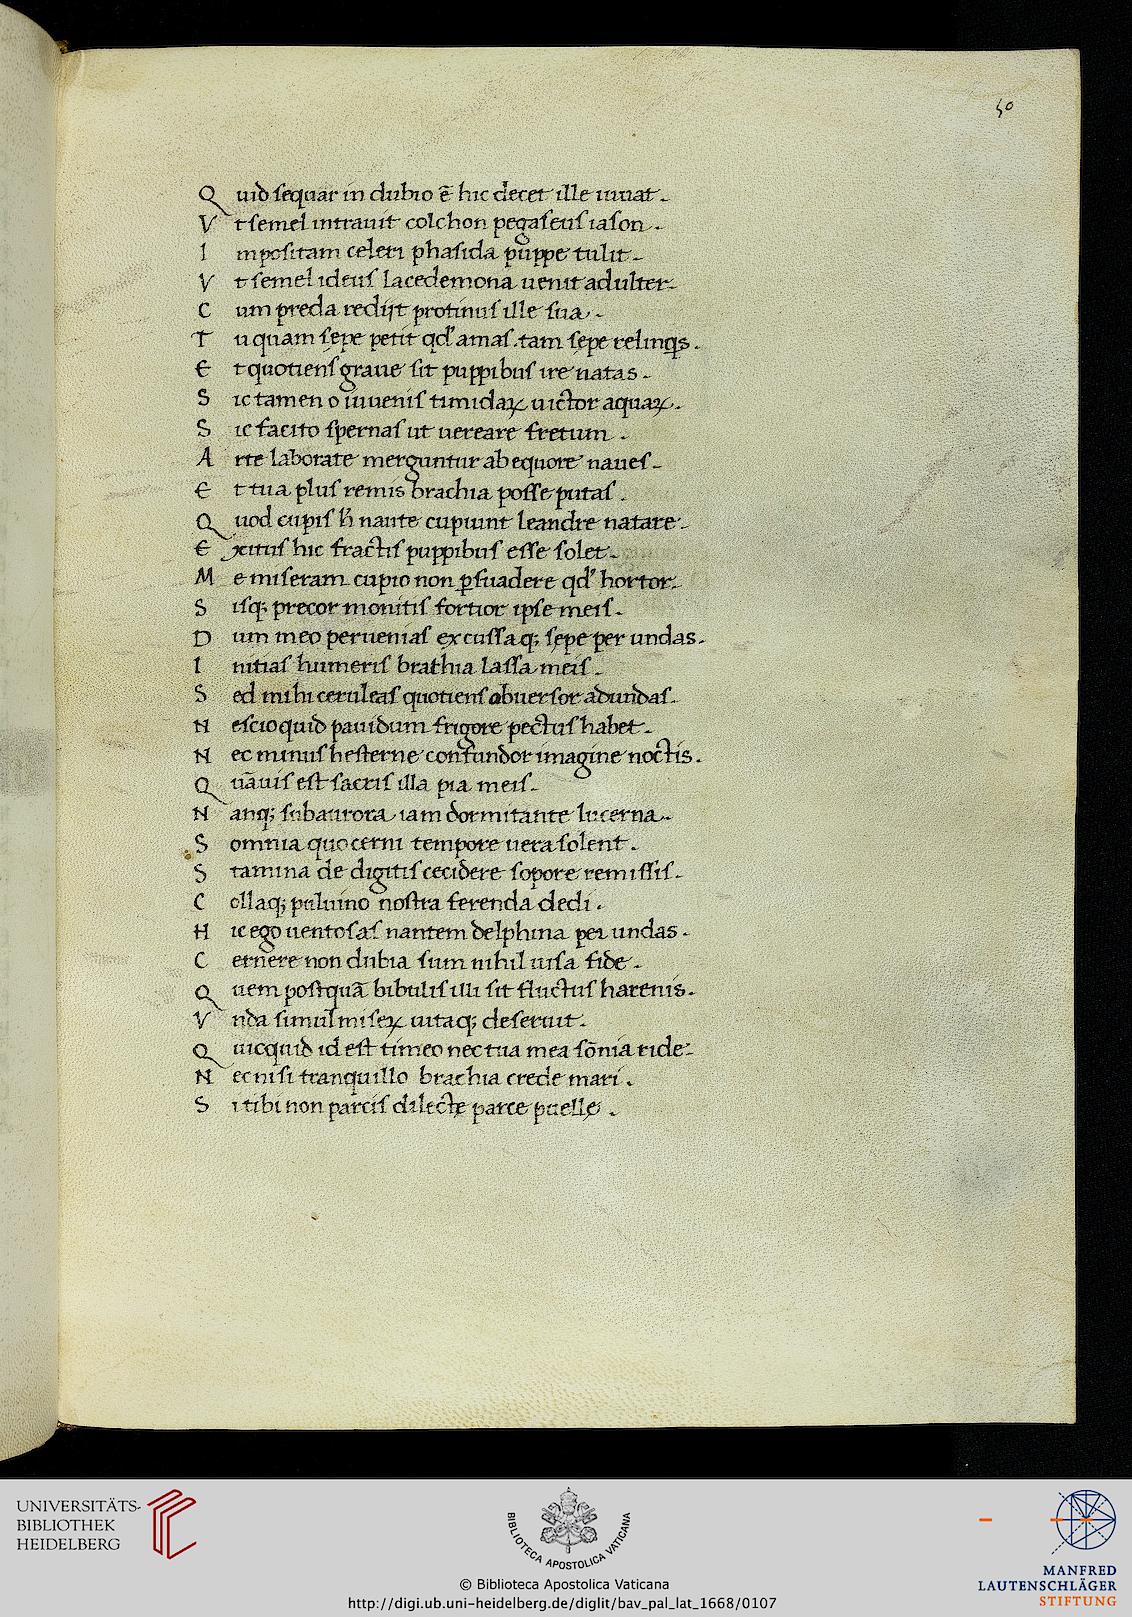 50
Quid sequar in dubio ē hic decet ille iuuat.
Vt semel intrauit colchon pegaseus iason.
Impositam celeri phasida puppe tulit.
Vt semel ideus lacedemona uenit adulter.
Cum preda redijt protinus ille sua.
Tu quam sępe petit qd' amas. tam sępe relinq̄s.
Et quotiens graue sit puppibus ire natas.
Sic tamen o iuuenis timidaꝝ uictor aquaꝝ.
Sic facito spernas ut uereare fretum.
Arte laborate merguntur ab equore naues.
Et tua plus remis brachia posse putas.
Quod cupis h̄ naute cupiunt leandre natare.
Exitus hic fractis puppibus esse solet.
Me miseram cupio non ꝑsuadere qd' hortor.
Sisq; precor monitis fortior ipse meis.
Dum meo peruenias excussaq; sępe per undas.
Initias humeris brathia lassa meis.
Sed mihi ceruleas quotiens obuersor ad undas.
Nescio quid pauidum frigore pectus habet.
Nec minus hesterne confundor imagine noctis.
Quāuis est sacris illa pia meis.
Nanq; sub aurora iam dormitante lucerna.
Somnia quo cerni tempore uera solent.
Stamina de digitis cecidere sopore remissis.
Collaq; puluino nostra ferenda dedi.
Hic ego uentosas nantem delphina per undas.
Cernere non dubia sum nihil uisa fide.
Quem postquā bibulis illi sit fluctus harenis.
Vnda simul miseꝝ uitaq; deseruit.
Quicquid id est timeo nec tua mea sōnia ride.
Nec nisi tranquillo brachia crede mari.
Si tibi non parcis dilectę parce puellę.
UNIVERSITÄTS-
BIBLIOTHEK
HEIDELBERG
BIBLIOTECA APOSTOLICA VATICANA
© Biblioteca Apostolica Vaticana
http://digi.ub.uni-heidelberg.de/diglit/bav_pal_lat_1668/0107
MANFRED
LAUTENSCHLÄGER
STIFTUNG